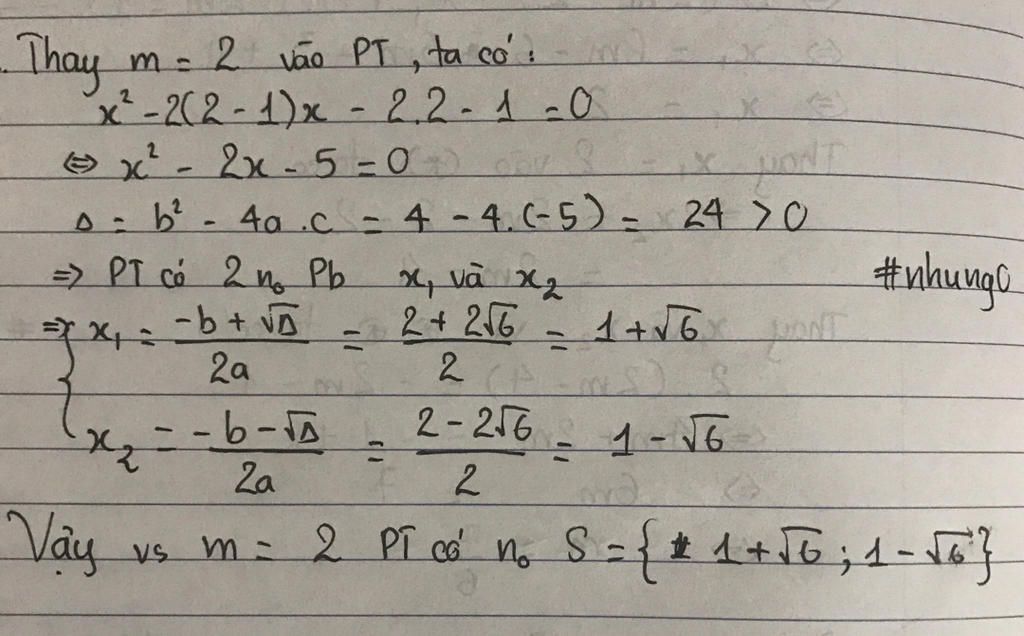 . Thay m = 2 vào PT, ta có:
x² - 2(2 - 1)x - 2.2 - 1 = 0
⇔ x² - 2x - 5 = 0
Δ = b² - 4a.c = 4 - 4.(-5) = 24 > 0
⇒ PT có 2 n₀ Pb x₁ và x₂ #nhung0
⇒{ x₁ = (-b + √Δ)/2a = (2 + 2√6)/2 = 1 + √6
x₂ = (-b - √Δ)/2a = (2 - 2√6)/2 = 1 - √6
Vậy vs m = 2 PT có n₀ S = { 1 + √6 ; 1 - √6 }